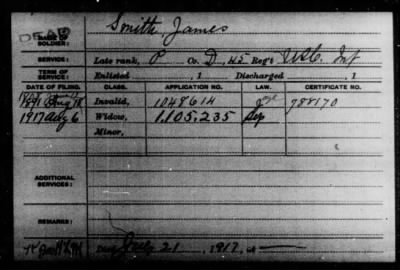 DEAD
NAME OF SOLDIER: Smith, James
SERVICE: Late rank, P Co. D, 45 Reg't U.S.C. Inf
TERM OF SERVICE: Enlisted , 1 Discharged , 1
DATE OF FILING. CLASS. APPLICATION NO. LAW. CERTIFICATE NO.
1891 Aug Invalid, 1048614 788170
1917 Aug 6 Widow, 1.105.235 Sep
Minor,
ADDITIONAL SERVICES:
REMARKS:
Died July 21, 1917, at —